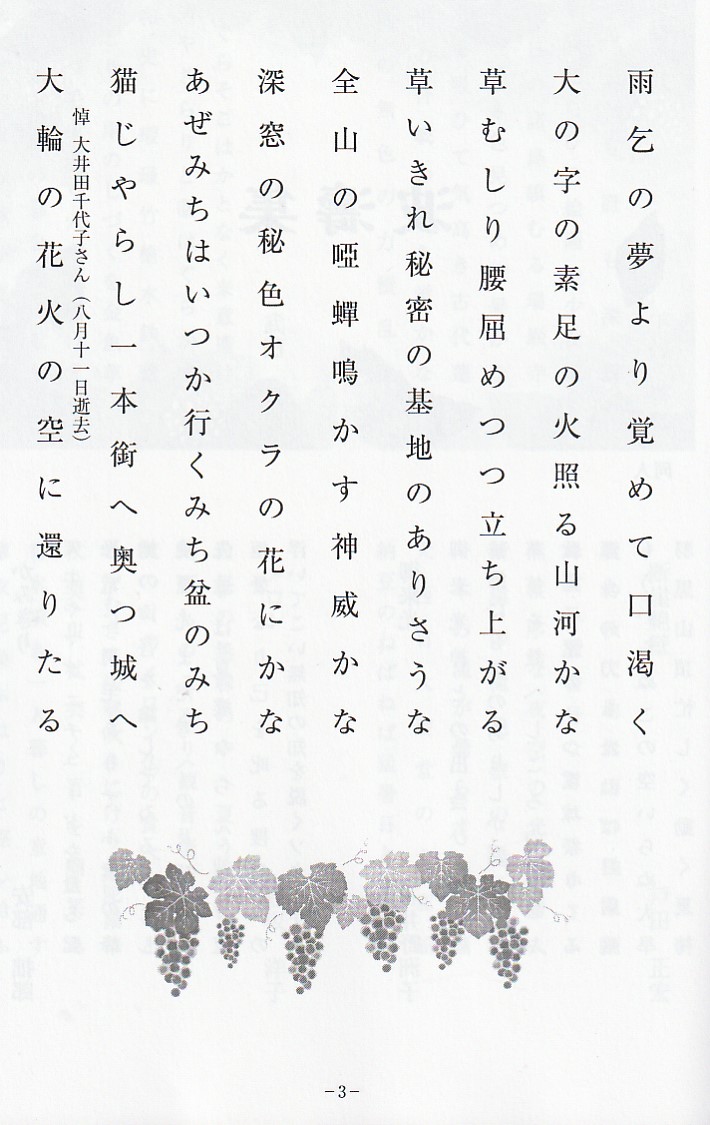 雨乞の夢より覚めて口渇く
大の字の素足の火照る山河かな
草むしり腰屈めつつ立ち上がる
草いきれ秘密の基地のありさうな
全山の啞蟬鳴かす神威かな
深窓の秘色オクラの花にかな
あぜみちはいつか行くみち盆のみち
猫じゃらし一本銜へ奥つ城へ
悼 大井田千代子さん（八月十一日逝去）
大輪の花火の空に還りたる
－3－